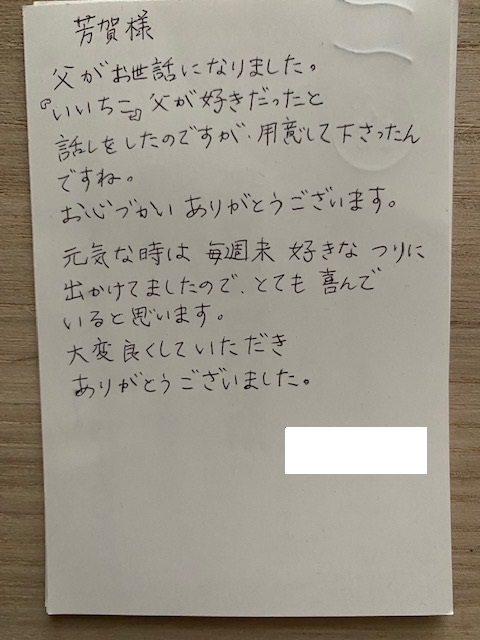 芳賀様
父がお世話になりました。
『いいちこ』父が好きだったと
話しをしたのですが、用意して下さったん
ですね。
お心づかい ありがとうございます。
元気な時は 毎週末 好きな つりに
出かけてましたので、とても 喜んで
いると思います。
大変良くしていただき
ありがとうございました。